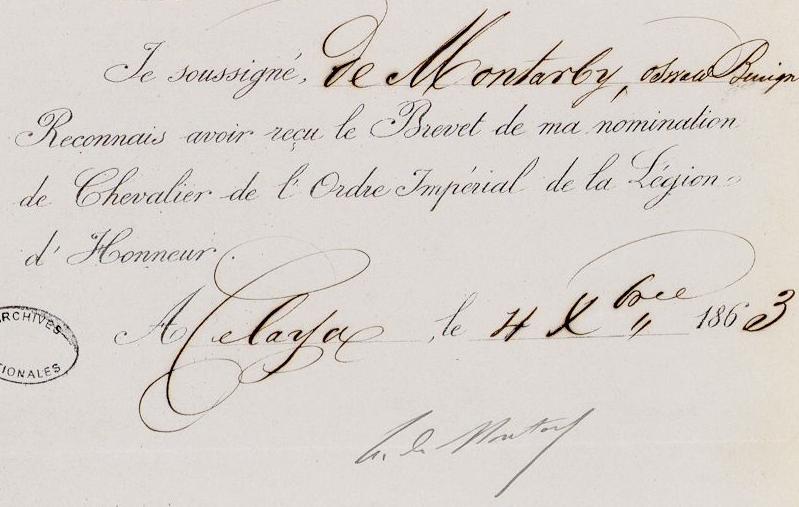 Je soussigné, de Montarby, oswald Benign
Reconnais avoir reçu le Brevet de ma nomination
de Chevalier de l'Ordre Impérial de la Légion
d'Honneur.
A Celaya, le 4 Xbre 1863
ARCHIVES
de Montarby